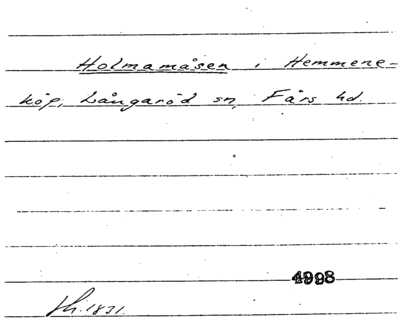 Holmamåsen i Hemmene-
köp, Långaröd sn, Färs hd.
4998
1831.